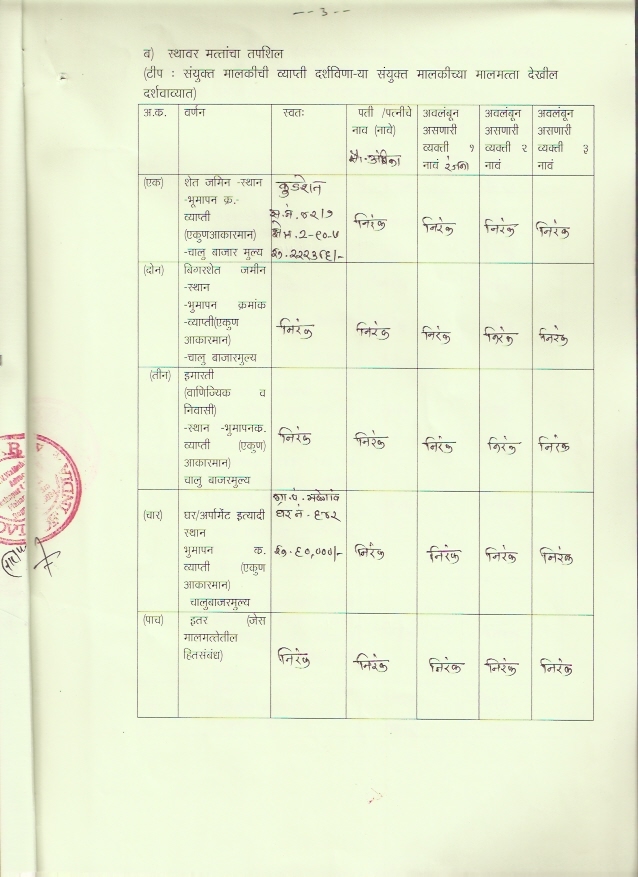 --3--
ब) स्थावर मत्तांचा तपशिल
(टीप : संयुक्त मालकीची व्याप्ती दर्शविणा-या संयुक्त मालकीच्या मालमत्ता देखील
दर्शवाव्यात)
अ.क. वर्णन स्वतः पती /पत्नीचे अवलंबून अवलंबून अवलंबून
नाव (नावे) असणारी असणारी असणारी
व्यक्ती १ व्यक्ती २ व्यक्ती ३
नावं रंजना नावं नावं
सौ.
(एक) शेत जमिन -स्थान
-भूमापन क्र.-
व्याप्ती
(एकुणआकारमान)
-चालु बाजार मुल्य
स.नं. ४२/७
क्षेत्र. २-९०-५
रु. २२२३९६/-
निरंक निरंक निरंक निरंक
(दोन) बिगरशेत जमीन
-स्थान
-भुमापन क्रमांक
-व्याप्ती(एकुण
आकारमान)
-चालु बाजारमुल्य
निरंक निरंक निरंक निरंक निरंक
(तीन) इमारती
(वाणिज्यिक व
निवासी)
-स्थान -भुमापनक.
व्याप्ती (एकुण)
आकारमान)
चालु बाजरमुल्य
निरंक निरंक निरंक निरंक निरंक
(चार) घर/अर्पामेंट इत्यादी
स्थान
भुमापन क.
व्याप्ती (एकुण
आकारमान)
चालुबाजारमुल्य
ग्रा.पं.
घर नं.
रु. ९०,०००/-
निरंक निरंक निरंक निरंक
(पाच) इतर (जेस
मालमत्तेतील
हितसंबंध)
निरंक निरंक निरंक निरंक निरंक